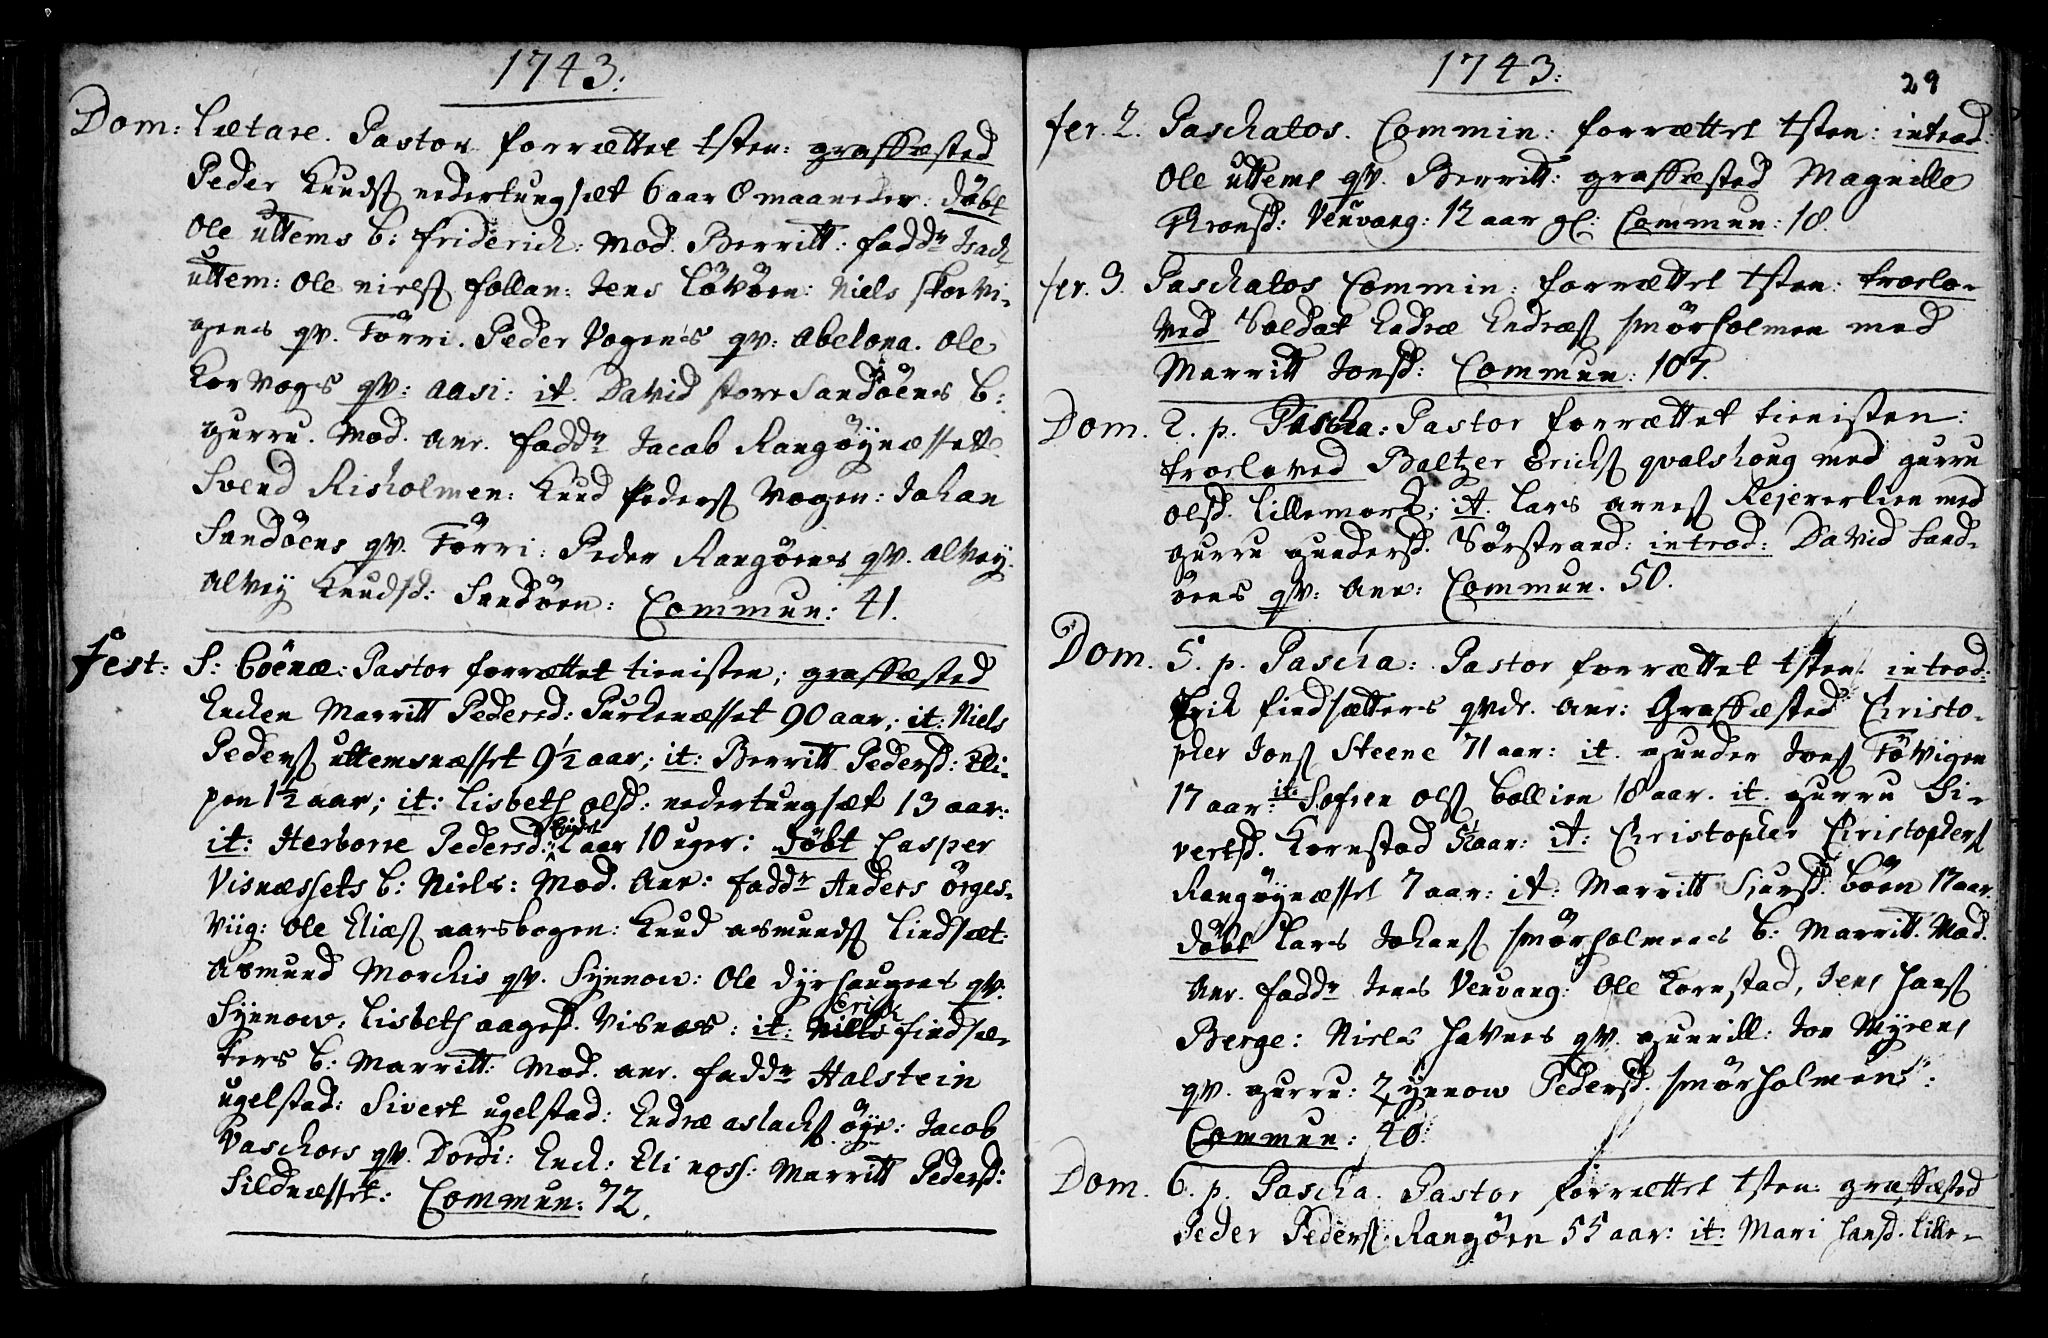 1743.
Dom: Lætare. Pastor forrættet tsten: graffæsted
Peder Knuds nedertungsæt 6 aar 8 maaneder. Döbt
Ole uttems b: friderich: Mod. Berritt: fadd Isach
uttem: Ole niels follan: Jens Lövöen: Niels skorvi-
gens qv. Törri. Peder Vogens qv: Abelona. Ole
Korvogs qv: aasi: it. David store Sandöens b:
gurru. Mod. anr. fadd Jacob Rangöynæsset.
Svend Risholmen: Knud Peders Vogen: Johan
Sandöens qv. Törri: Peder Rangöens qv. alvey.
alvey Knudsd: Sandöen: Commun: 41.
fest: S: Coenæ: Pastor forrættet tienisten; graffæsted
Encken Marritt Pedersd: Purkenæsset 90 aar; it: Niels
Peders uttemsnæsset 9½ aar; it: Berritt Pedersd: Eli-
pen 1½ aar; it: Lisbeth olsd: nedertungsæt 13 aar:
it: Herborre Pedersd: aar 10 uger: Döbt Casper
Visnæssets b: Niels: Mod. Anr: fadd Anders örges-
viig: Ole Elias aarsbogen: Knud asmunds Lindsæt:
Asmund Morchis qv. Synnow: Ole dyrhaugens qv.
Synnow. Lisbeth aagesd. Visnæs: it: Erich findsæt-
ters b: Marritt: Mod. anr. fadd Halstein
ugelstad: Sivert ugelstad: Endræ aslachs öye: Jacob
Vaschoes qv. Dordi: Enck: Eli noss: Marritt Pedersd:
Sildnæsset: Commun: 72.
1743.
29
fer. 2. Paschatos. Commin: forrættet tsten: introd:
Ole uttems qv. Berritt: graffæsted Magnille
Thronsd: Venvang: 12 aar gl: Commun: 18.
fer. 3. Paschatos Commin: forrættet tsten: troelo-
ved Soldat Endræ Endræs smörholmen med
Marritt Jonsd: Commun: 107.
Dom. 2. p. Pascha: Pastor forrættet tienisten:
troeloved Baltzer Erichs qvalshoug med gurru
olsd. Lillemork; it. Lars arnes Rejererlien med
gurru gundersd. Sörstrand: introd: David Sand-
öens qv: Anr: Commun. 50.
Dom. 5. p. Pascha: Pastor forrættet tsten: introd:
Erik findsætters qvde. Anr: Graffæsted Christo-
pher Jons Steene 71 aar: it. gunder Jons Tövigen
17 aar: it: Sofren ols bollien 18 aar. it. gurru Si-
vertsd. Kornstad 5½ aar: it: Christopher Christophers
Rangöynæsset 7 aar: it: Marritt Siursd. böen 17 aar.
Döbt Lars Johans smörholmens b: Marritt. Mod.
Anr. fadd Jens Venvang: Ole Kornstad, Jens Hans
Berge: Niels Havnes qv. gunnill: Jon Myrens
qv. gurru: Zynnow Pedersd. smörholmen:
Commun: 40.
Dom. 6. p. Pascha. Pastor forrættet tsten: graffæsted
Peder Peders Rangöen 55 aar: it: Mari Hansd. Lille-